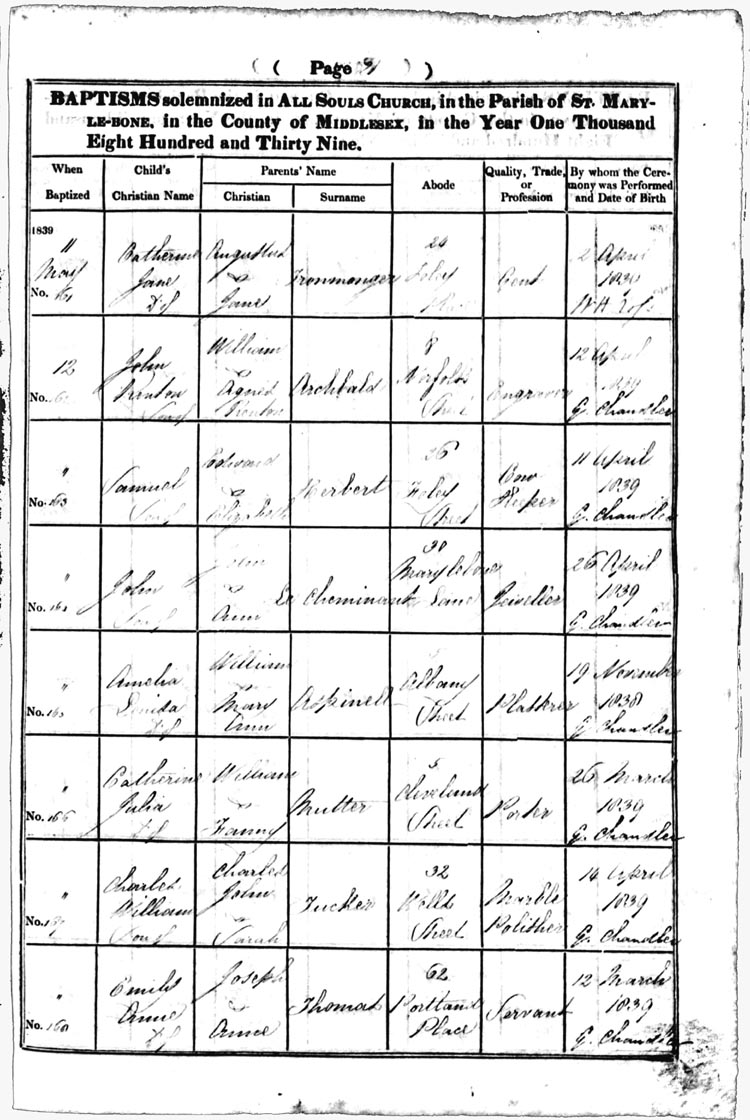 ( Page )
BAPTISMS solemnized in ALL SOULS CHURCH, in the Parish of ST. MARY-
LE-BONE, in the County of MIDDLESEX, in the Year One Thousand
Eight Hundred and Thirty Nine.
When Baptized
Child's Christian Name
Parents' Name
Christian
Surname
Abode
Quality, Trade, or Profession
By whom the Ceremony was Performed and Date of Birth
1839
11 May
No.
Catherine Jane D of
Augustus & Jane
Ironmonger
24 Foley
Gent
2 April 1839
12
No.
John Renton Son of
William & Agnes Renton
Archbald
8 Norfolk Street
Engraver
12 April 1839
G. Chandler
"
No. 163
Samuel Son of
Edward & Elizabeth
Herbert
26 Foley Street
Cow Keeper
11 April 1839
G. Chandler
"
No. 164
John Son of
John & Ann
Le Cheminant
30 Marylebone Lane
Jeweller
26 April 1839
G. Chandler
"
No. 165
Amelia D of
William & Mary Ann
Aspinell
Albany Street
Plasterer
19 November 1838
G. Chandler
"
No. 166
Catherine Julia D of
William & Fanny
Mutter
5 Cleveland Street
Porter
26 March 1839
G. Chandler
"
No. 167
Charles William Son of
Charles John & Sarah
Tucker
32 Wells Street
Marble Polisher
14 April 1839
G. Chandler
"
No. 168
Emily Anne D of
Joseph & Anne
Thomas
62 Portland Place
Servant
12 March 1839
G. Chandler